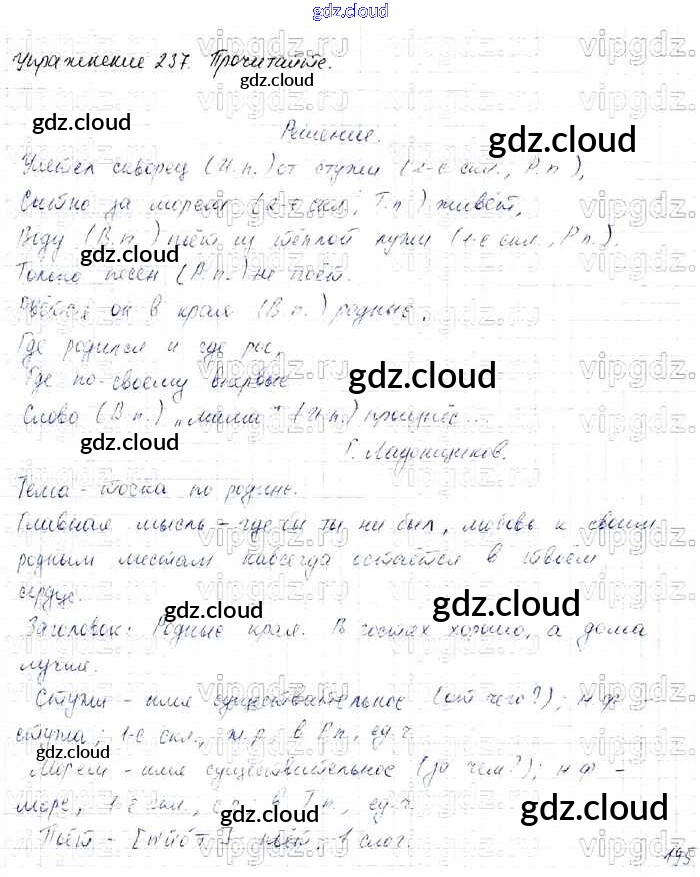 gdz.cloud
Упражнение 237. Прочитайте.
Решение.
Улетел скворец (И.п.) от стужи (1-е скл., Р.п.),
Сытно за морем (2-е скл., Т.п.) живёт,
Воду (В.п.) пьёт из тёплой лужи (1-е скл., Р.п.).
Только песен (Р.п.) не поёт.
он в края (В.п.) родные,
Где родился и где рос,
Где по-своему впервые
Слово (В.п.) "мама" (И.п.) произнёс...
Г. Ладонщиков.
Тема - тоска по родине.
Главная мысль - где бы ты ни был, любовь к своим
родным местам навсегда остаётся в твоём
сердце.
Заголовок: Родные края. В гостях хорошо, а дома
лучше.
Стужи - имя существительное (от чего?); н.ф. -
стужа; 1-е скл., ж.р., в Р.п., ед.ч.
Морем - имя существительное (за чем?); н.ф. -
море, скл., с.р. в Т.п., ед.ч.
Поёт - поёт, слог.
195